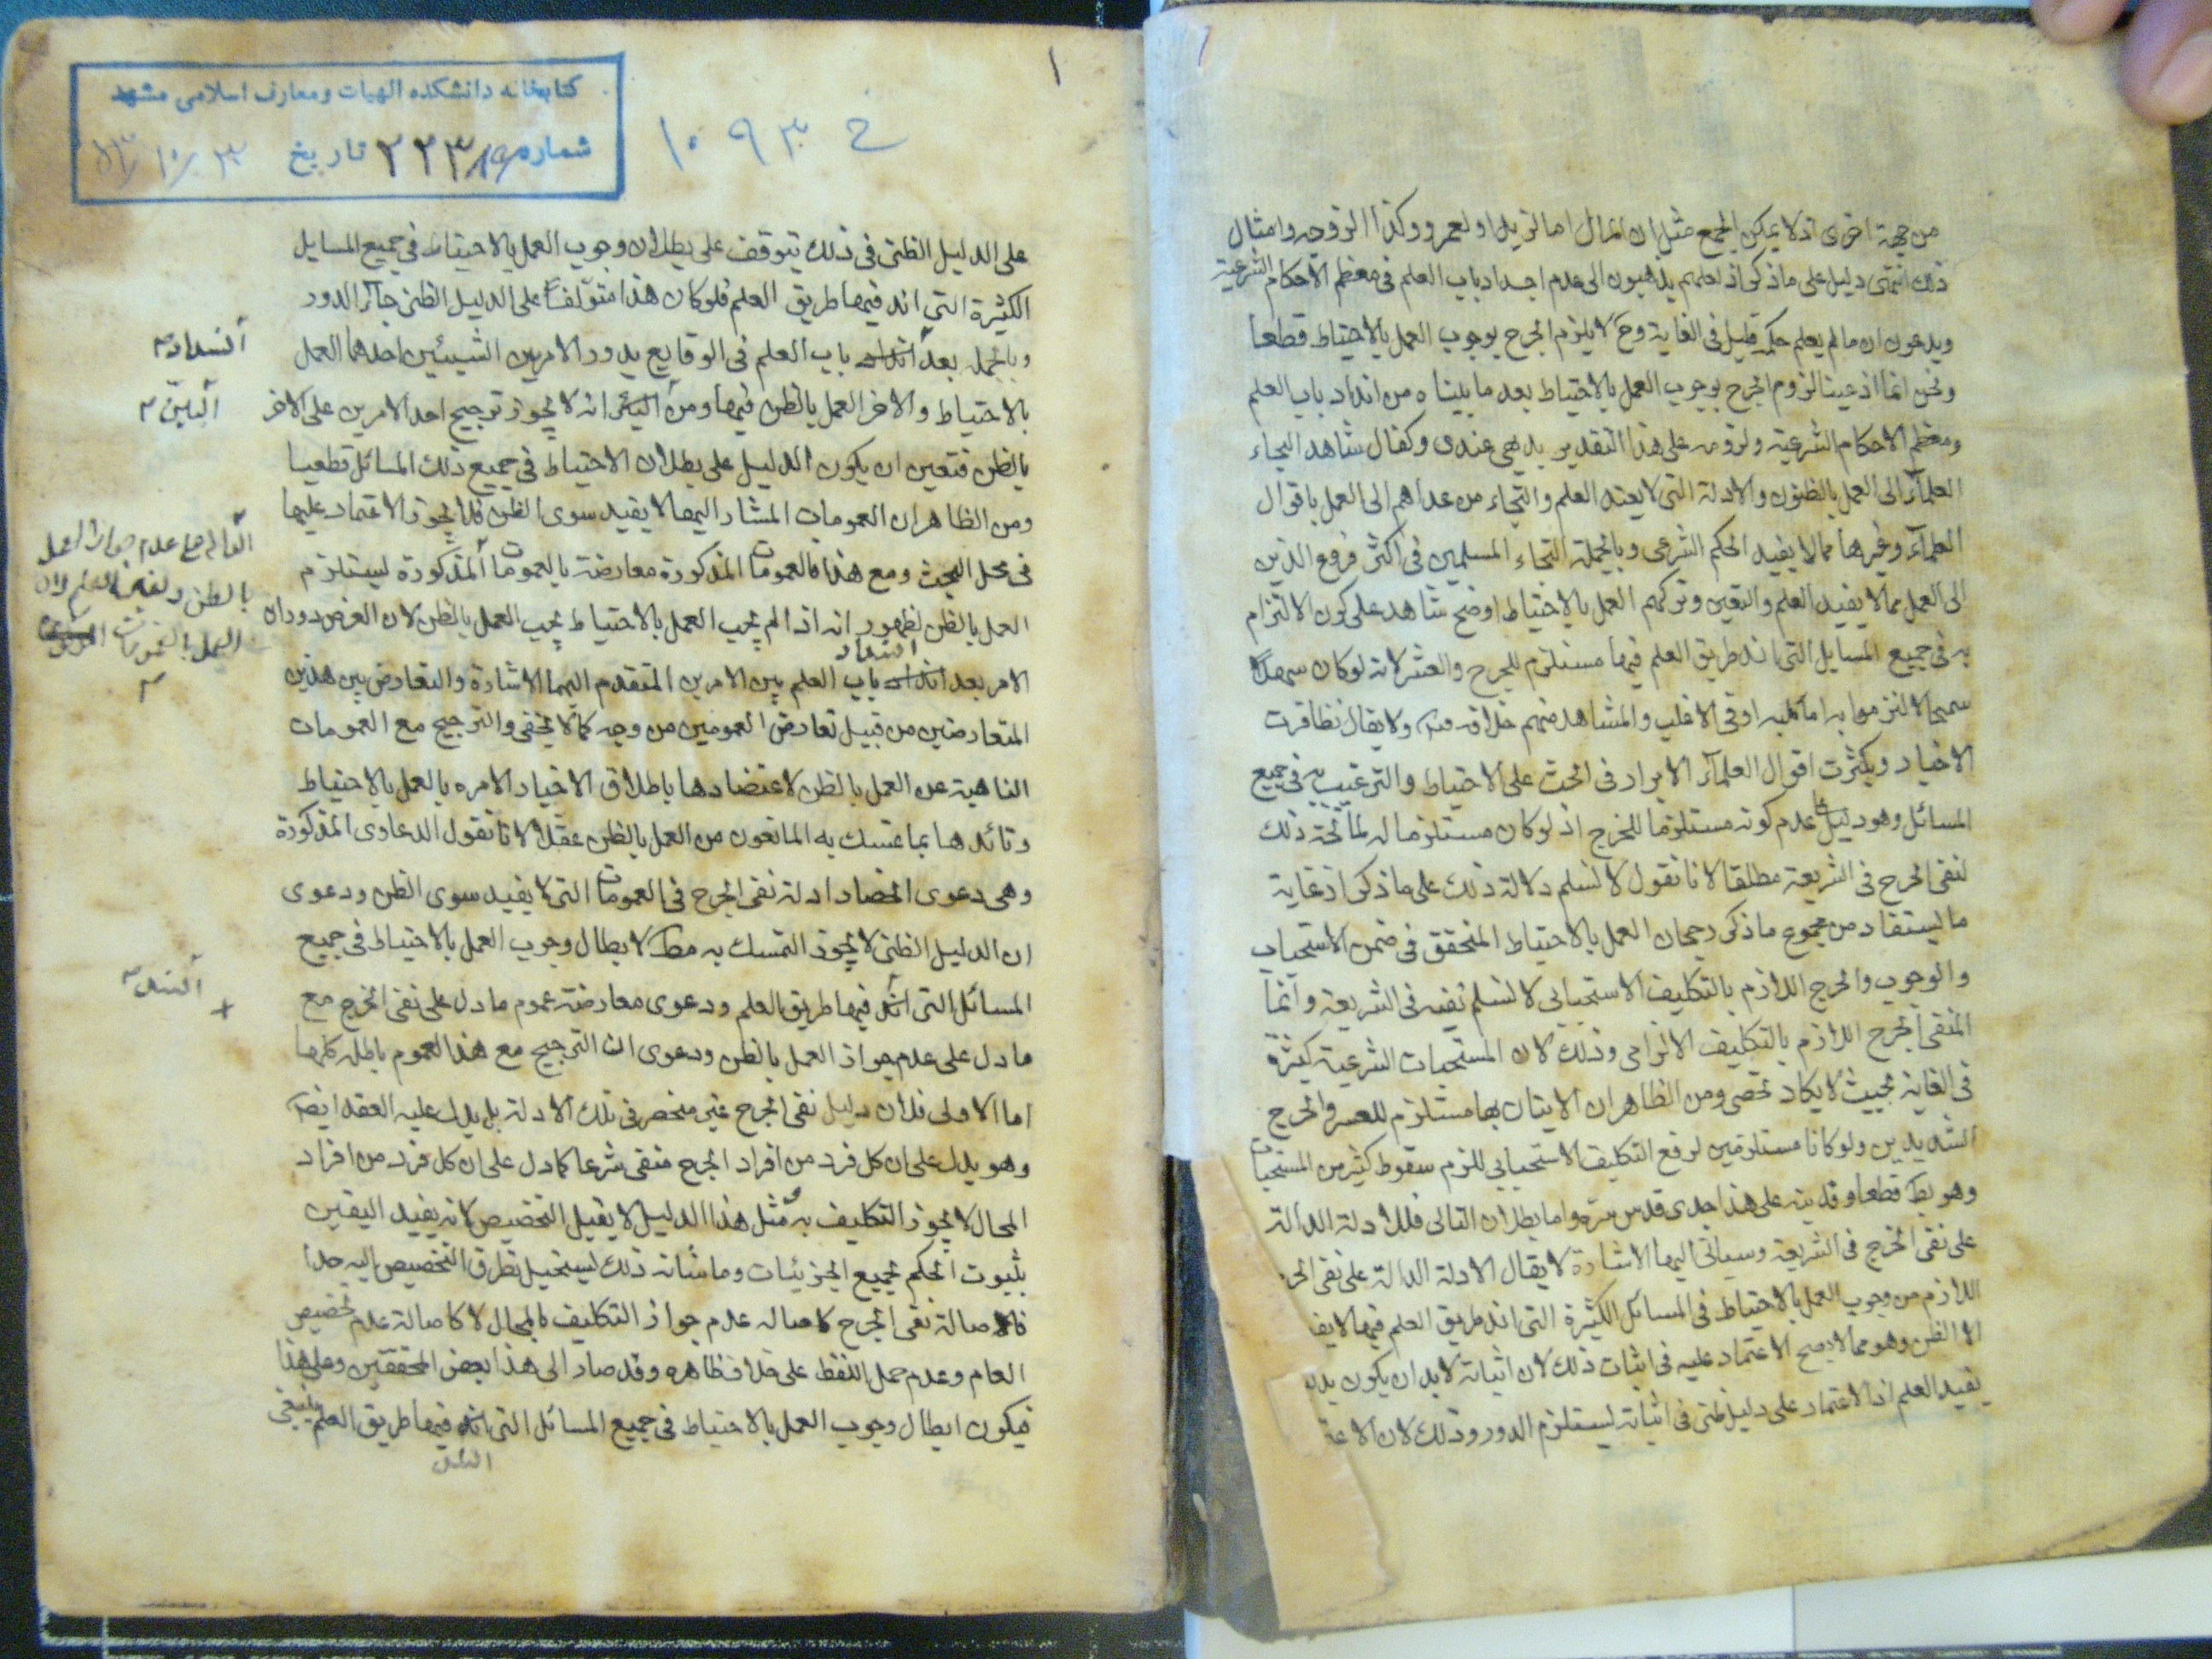 من جهة اخرى اذ لا يمكن الجمع مثل ان المال اما لزيد او لعمرو وكذا الزوجه وامثال
ذلك دليل على ما ذكر اذ لعلهم يذهبون الى عدم انسداد باب العلم فى معظم الاحكام الشرعية
ويدعون ان ما لم يعلم حكمه قليل فى الغاية وح لا يلزم الحرج بوجوب العمل بالاحتياط قطعا
ونحن انما ادعينا لزوم الحرج بوجوب العمل بالاحتياط بعد ما بيناه من انسداد باب العلم
ومعظم الاحكام الشرعية ولزومه على هذا التقدير بديهى عندى وكفاك شاهدا التجاء
العلمآء الى العمل بالظنون والادلة التى لا يفيد العلم والتجاء من عداهم الى العمل باقوال
العلمآء وغيرها مما لا يفيد الحكم الشرعى وبالجملة التجاء المسلمين فى اكثر فروع الدين
الى العمل بما لا يفيد العلم واليقين وتركهم العمل بالاحتياط اوضح شاهد على كون الالتزام
به فى جميع المسايل التى انسد طريق العلم فيها مستلزم للحرج والعسر لانه لو كان سهلا
سمحا لالتزموا به اما كلية او فى الاغلب والمشاهد منهم خلاف ولا يقال تظافرت
الاخبار وبكثرت اقوال العلمآء الابرار فى الحث على الاحتياط والترغيب به فى جميع
المسائل وهو دليل على عدم كونه مستلزما للحرج اذ لو كان مستلزما له لما صح ذلك
لنفى الحرج فى الشريعة مطلقا لانا نقول لا نسلم دلالة ذلك على ما ذكر اذ غاية
ما يستفاد من مجموع ما ذكر رجحان العمل بالاحتياط المتحقق فى ضمن الاستحباب
والوجوب والحرج اللازم بالتكليف الاستحبابى لا نسلم نفيه فى الشريعة وانما
المنفى الحرج اللازم بالتكليف الالزامى وذلك لان المستحبات الشرعية كثيرة
فى الغاية بحيث لا يكاد تحصى ومن الظاهر ان الاتيان بها مستلزم للعسر والحرج
الشديدين ولو كانا مستلزمين لرفع التكليف الاستحبابى للزم سقوط كثير من المستحبات
وهو بط قطعا وقد نبه على هذا جدى قدس سره واما بطلان التالى فللادلة الدالة
على نفى الحرج فى الشريعة وسياتى اليها الاشارة لا يقال الادلة الدالة على نفى الحر
اللازم من وجوب العمل بالاحتياط فى المسائل الكثيرة التى انسد طريق العلم فيها لا يفي
الا الظن وهو مما لا يصح الاعتماد عليه فى اثبات ذلك لان اثباته لا بد ان يكون بدليل
يفيد العلم اذ الاعتماد على دليل ظنى فى اثباته يستلزم الدور وذلك لان الاعت
كتابخانه دانشكده الهيات ومعارف اسلامى مشهد
شماره ۲۲۳۱۹ تاريخ
خ ۱۰۹۳
۱
على الدليل الظنى فى ذلك يتوقف على بطلان وجوب العمل بالاحتياط فى جميع المسايل
الكثيرة التى انسد فيها طريق العلم فلو كان هذا متوقفا على الدليل الظنى جآء الدور
وبالجملة بعد انسداد باب العلم فى الوقايع يدور الامر بين الشيئين احدهما العمل
بالاحتياط والاخر العمل بالظن فيها ومن البين انه لا يجوز ترجيح احد الامرين على الاخر
بالظن فتعين ان يكون الدليل على بطلان الاحتياط فى جميع ذلك المسائل قطعيا
ومن الظاهر ان العمومات المشار اليها لا يفيد سوى الظن فلا يجوز الاعتماد عليها
فى محل البحث ومع هذا فالعمومات المذكورة معارضة بالعمومات المذكورة يستلزم
العمل بالظن لظهور انه اذا لم يجب العمل بالاحتياط يجب العمل بالظن لان الفرض دوران
الامر بعد انسداد باب العلم بين الامرين المتقدم اليهما الاشارة والتعارض بين هذين
المتعارضين من قبيل تعارض العمومين من وجه كما لا يخفى والترجيح مع العمومات
الناهية عن العمل بالظن لاعتضادها باطلاق الاخبار الامره بالعمل بالاحتياط
وتائدها بما تمسك به المانعون من العمل بالظن عقلا لانا نقول الدعاوى المذكورة
وهى دعوى انحصار ادلة نفى الحرج فى العمومات التى لا يفيد سوى الظن ودعوى
ان الدليل الظنى لا يجوز التمسك به مط لابطال وجوب العمل بالاحتياط فى جميع
المسائل التى انسد فيها طريق العلم ودعوى معارضة عموم ما دل على نفى الحرج مع
ما دل على عدم جواز العمل بالظن ودعوى ان الترجيح مع هذا العموم باطلة كلها
اما الاولى فلان دليل نفى الحرج غير منحصر فى تلك الادلة بل يدل عليه العقل ايض
وهو يدل على ان كل فرد من افراد الحرج منفى شرعا كما دل على ان كل فرد من افراد
المحال لا يجوز التكليف به ومثل هذا الدليل لا يقبل التخصيص لانه يفيد اليقين
بثبوت الحكم لجميع الجزئيات وما شانه ذلك يستحيل تطرق التخصيص اليه جدا
فالاصالة نفى الحرج كاصاله عدم جواز التكليف بالمحال لا كاصالة عدم تخصيص
العام وعدم حمل اللفظ على خلاف ظاهره وقد صار الى هذا بعض المحققين وعلى هذا
فيكون ابطال وجوب العمل بالاحتياط فى جميع المسائل التى انسد فيها طريق العلم بنفى
انسداد
البين
الدالة على عدم جواز العمل
بالظن وبغير العلم لان
العمل بالعمومات
انسداد
انسد
انسد